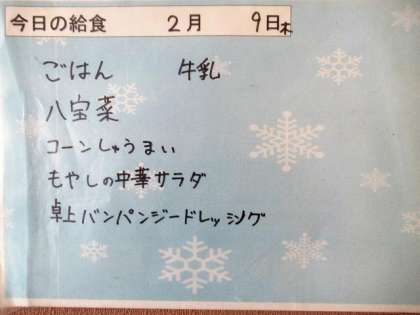 今日の給食 2月 9日木
ごはん 牛乳
八宝菜
コーンしゅうまい
もやしの中華サラダ
卓上バンバンジードレッシング